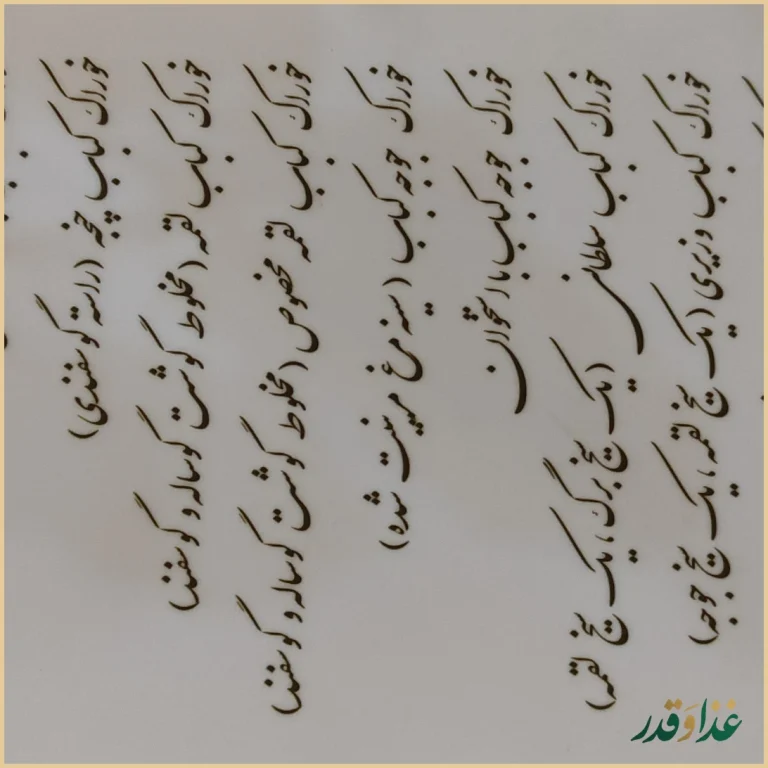 خوراک کباب چنجه (راسته گوسفندی)
خوراک کباب لقمه (مخلوط گوشت گوساله و گوسفند)
خوراک کباب لقمه مخصوص (مخلوط گوشت گوساله و گوسفند)
خوراک جوجه کباب (سینه مرغ مرینیت شده)
خوراک جوجه کباب با استخوان
خوراک کباب سلطانی (یک سیخ برگ، یک سیخ لقمه)
خوراک کباب وزیری (یک سیخ لقمه، یک سیخ جوجه)
غذا وَ قدر